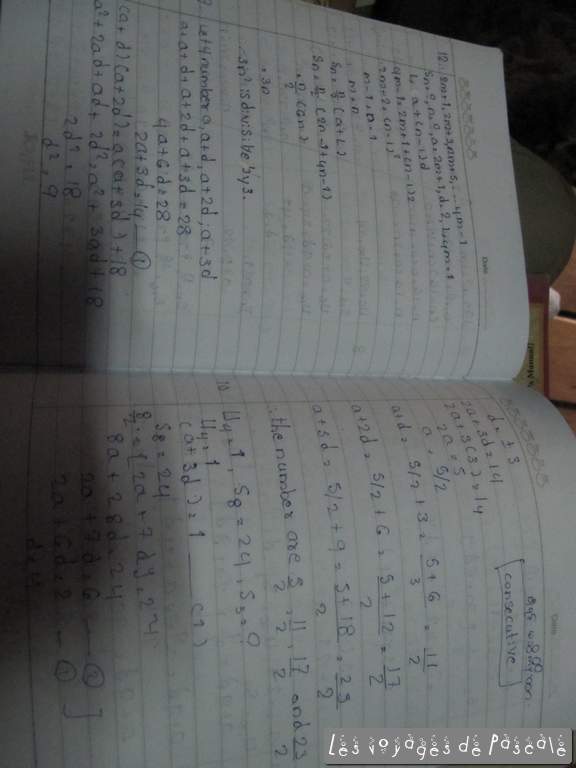 12. 2m+1, 2m+3, 2m+5, ... 4m-1
Sn=?, n=?, a=2m+1, d=2, L=4m-1
L= a+(n-1)d
4m-1=2m+1+(n-1)2
2m-2=(n-1)2
m-1=n-1
m=n
Sn= n/2 (a+L)
Sn= n/2 (2n+1+4n-1)
= n/2 (6n)
= 3n²
∴ 3n² is divisible by 3.
9. Let 4 number a, a+d, a+2d, a+3d
a+a+d+a+2d+a+3d=28
4a+6d=28
2a+3d=14 - ①
(a+d)(a+2d)=a(a+3d)+18
a²+2ad+ad+2d²=a²+3ad+18
2d²=18
d²=9
Date
consecutive
d= ±3
2a+3d=14
2a+3(3)=14
2a=5
a= 5/2
a+d= 5/2+3= 5+6/2 = 11/2
a+2d= 5/2+6= 5+12/2 = 17/2
a+3d= 5/2+9= 5+18/2 = 23/2
∴ the number are 5/2, 11/2, 17/2 and 23/2
10 U4=1, S8=24, S3=?
U4=1
(a+3d)=1 (1)
S8=24
8/2 {2a+7d}=24
8a+28d=24
2a+7d=6 - ②
2a+6d=2 - ①
d=4
Les voyages de Pascale